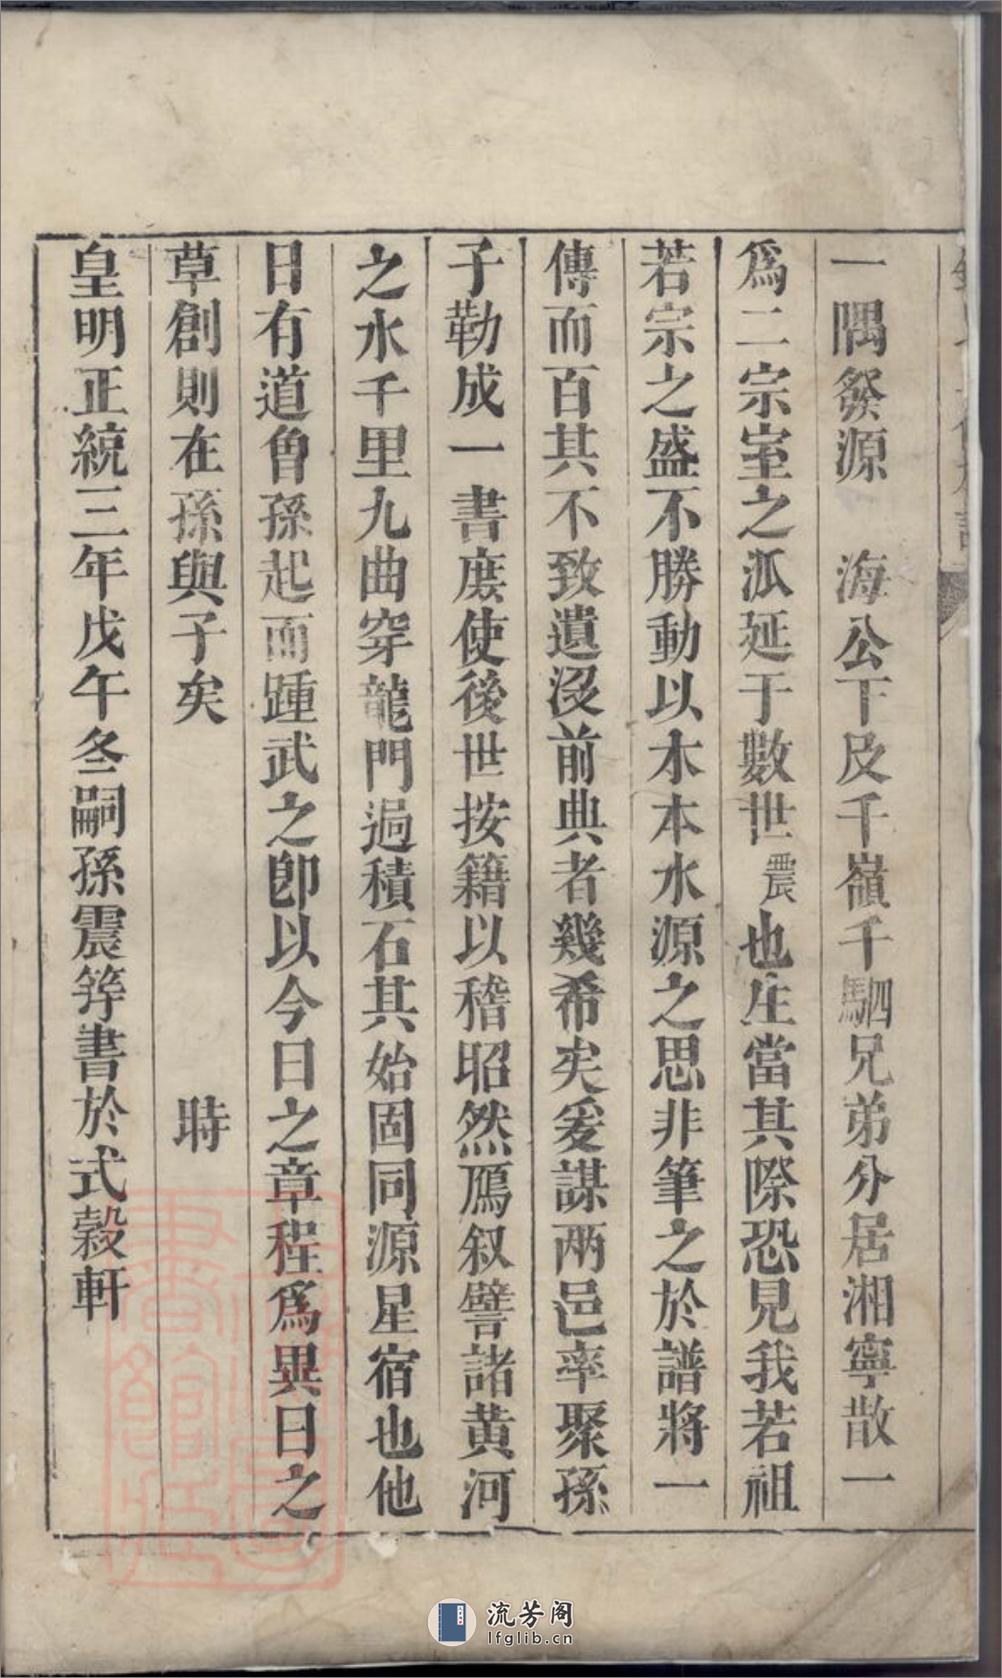 一隅發源　海公下及千嶺千駟兄弟分居湘寧散一
爲二宗室之派延于數世震也庄當其際恐見我若祖
若宗之盛不勝動以木本水源之思非筆之於譜將一
傳而百其不致遺沒前典者幾希矣爰謀兩邑率聚孫
子勒成一書庶使後世按籍以稽昭然鴈叙譬諸黄河
之水千里九曲穿龍門過積石其始固同源星宿也他
日有道曾孫起而踵武之卽以今日之章程爲異日之
草創則在孫與子矣　時
皇明正統三年戊午冬嗣孫震等書於式穀軒
流芳阁
lfglib.cn